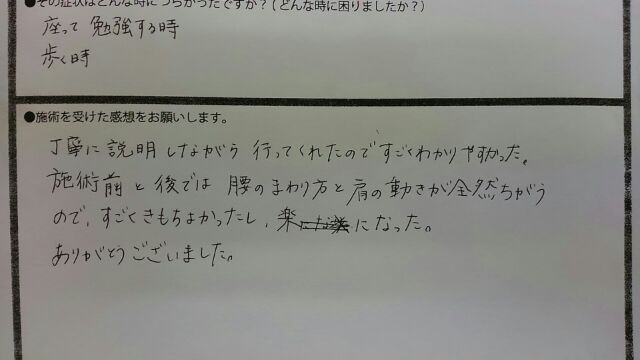 ●その症状はどんな時につらかったですか？(どんな時に困りましたか？)
座って 勉強する時
歩く時
●施術を受けた感想をお願いします。
丁寧に説明しながらう 行ってくれたのですごくわかりやすかった。
施術前と後では 腰のまわり方と肩の動きが全然ちがう
ので、すごくきもちよかったし、楽になった。
ありがとうございました。